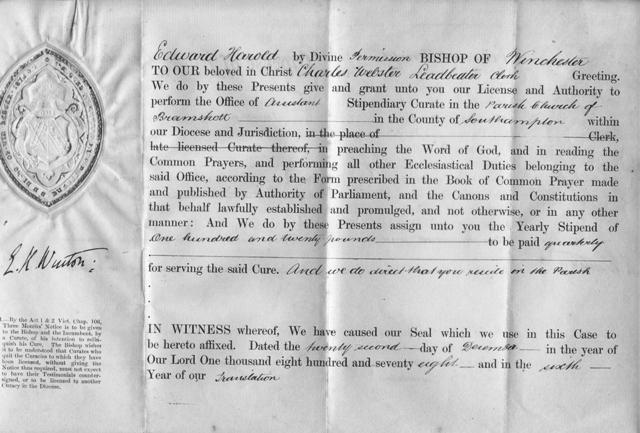 Edward Harold by Divine Permission BISHOP OF Winchester
TO OUR beloved in Christ Charles Webster Leadbeater Clerk Greeting.
We do by these Presents give and grant unto you our License and Authority to
perform the Office of Assistant Stipendiary Curate in the Parish Church of
Bramshott in the County of Southampton within
our Diocese and Jurisdiction, in the place of Clerk,
late licensed Curate thereof, in preaching the Word of God, and in reading the
Common Prayers, and performing all other Ecclesiastical Duties belonging to the
said Office, according to the Form prescribed in the Book of Common Prayer made
and published by Authority of Parliament, and the Canons and Constitutions in
that behalf lawfully established and promulged, and not otherwise, or in any other
manner: And We do by these Presents assign unto you the Yearly Stipend of
One hundred and twenty pounds to be paid quarterly
for serving the said Cure. And we do direct that you reside in the Parish
IN WITNESS whereof, We have caused our Seal which we use in this Case to
be hereto affixed. Dated the twenty second day of December in the year of
Our Lord One thousand eight hundred and seventy eight and in the sixth
Year of our Translation
E. H. Winton:
—By the Act 1 & 2 Vict. Chap. 106,
Three Months' Notice is to be given
to the Bishop and the Incumbent, by
a Curate, of his intention to relin-
quish his Cure. The Bishop wishes
it to be understood that Curates who
quit the Curacies to which they have
been licensed, without giving the
Notice thus required, must not expect
to have their Testimonials counter-
signed, or to be licensed to another
Curacy in the Diocese.